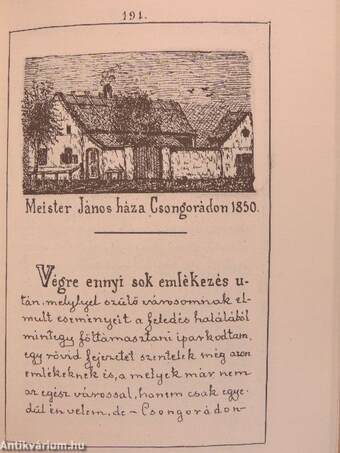 191.
Meister János háza Csongorádon 1850.
Végre ennyi sok emlékezés u-
tán, melylyel szülő városomnak el-
mult eseményeit a feledés halálából
mintegy föltámasztani iparkodtam,
egy rövid fejezetet szentelek még azon
emlékeknek is, a melyek már nem
az egész várossal, hanem csak egye-
dül én velem, de - Csongorádon
Antikvárium.hu